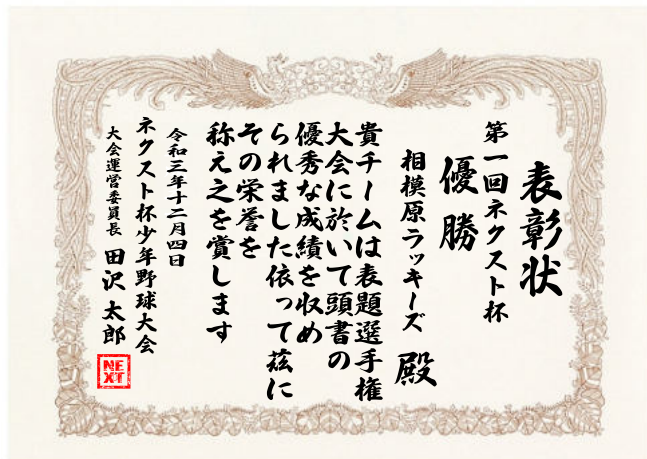 表彰状
第一回ネクスト杯
優勝
相模原ラッキーズ 殿
貴チームは表題選手権
大会に於いて頭書の
優秀な成績を収め
られました依って茲に
その栄誉を
称え之を賞します
令和三年十二月四日
ネクスト杯少年野球大会
大会運営委員長 田沢太郎
NE
XT